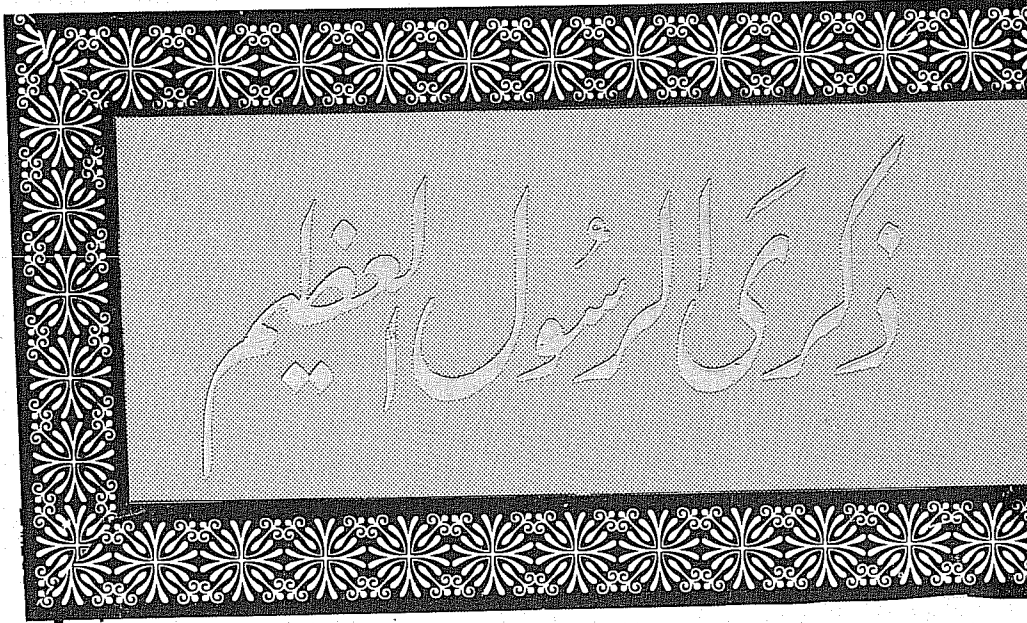 ذكرى الرسول العظيم